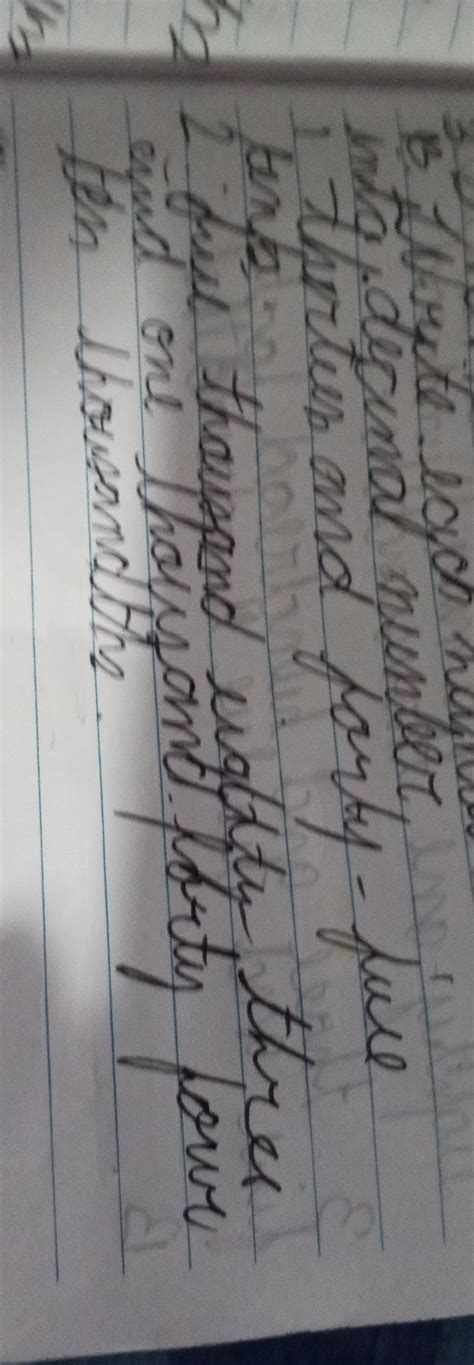 B. Write each
into decimal number.
1. thirteen and forty-five
2. five thousand eighty three
and one thousand forty four
ten thousandths.